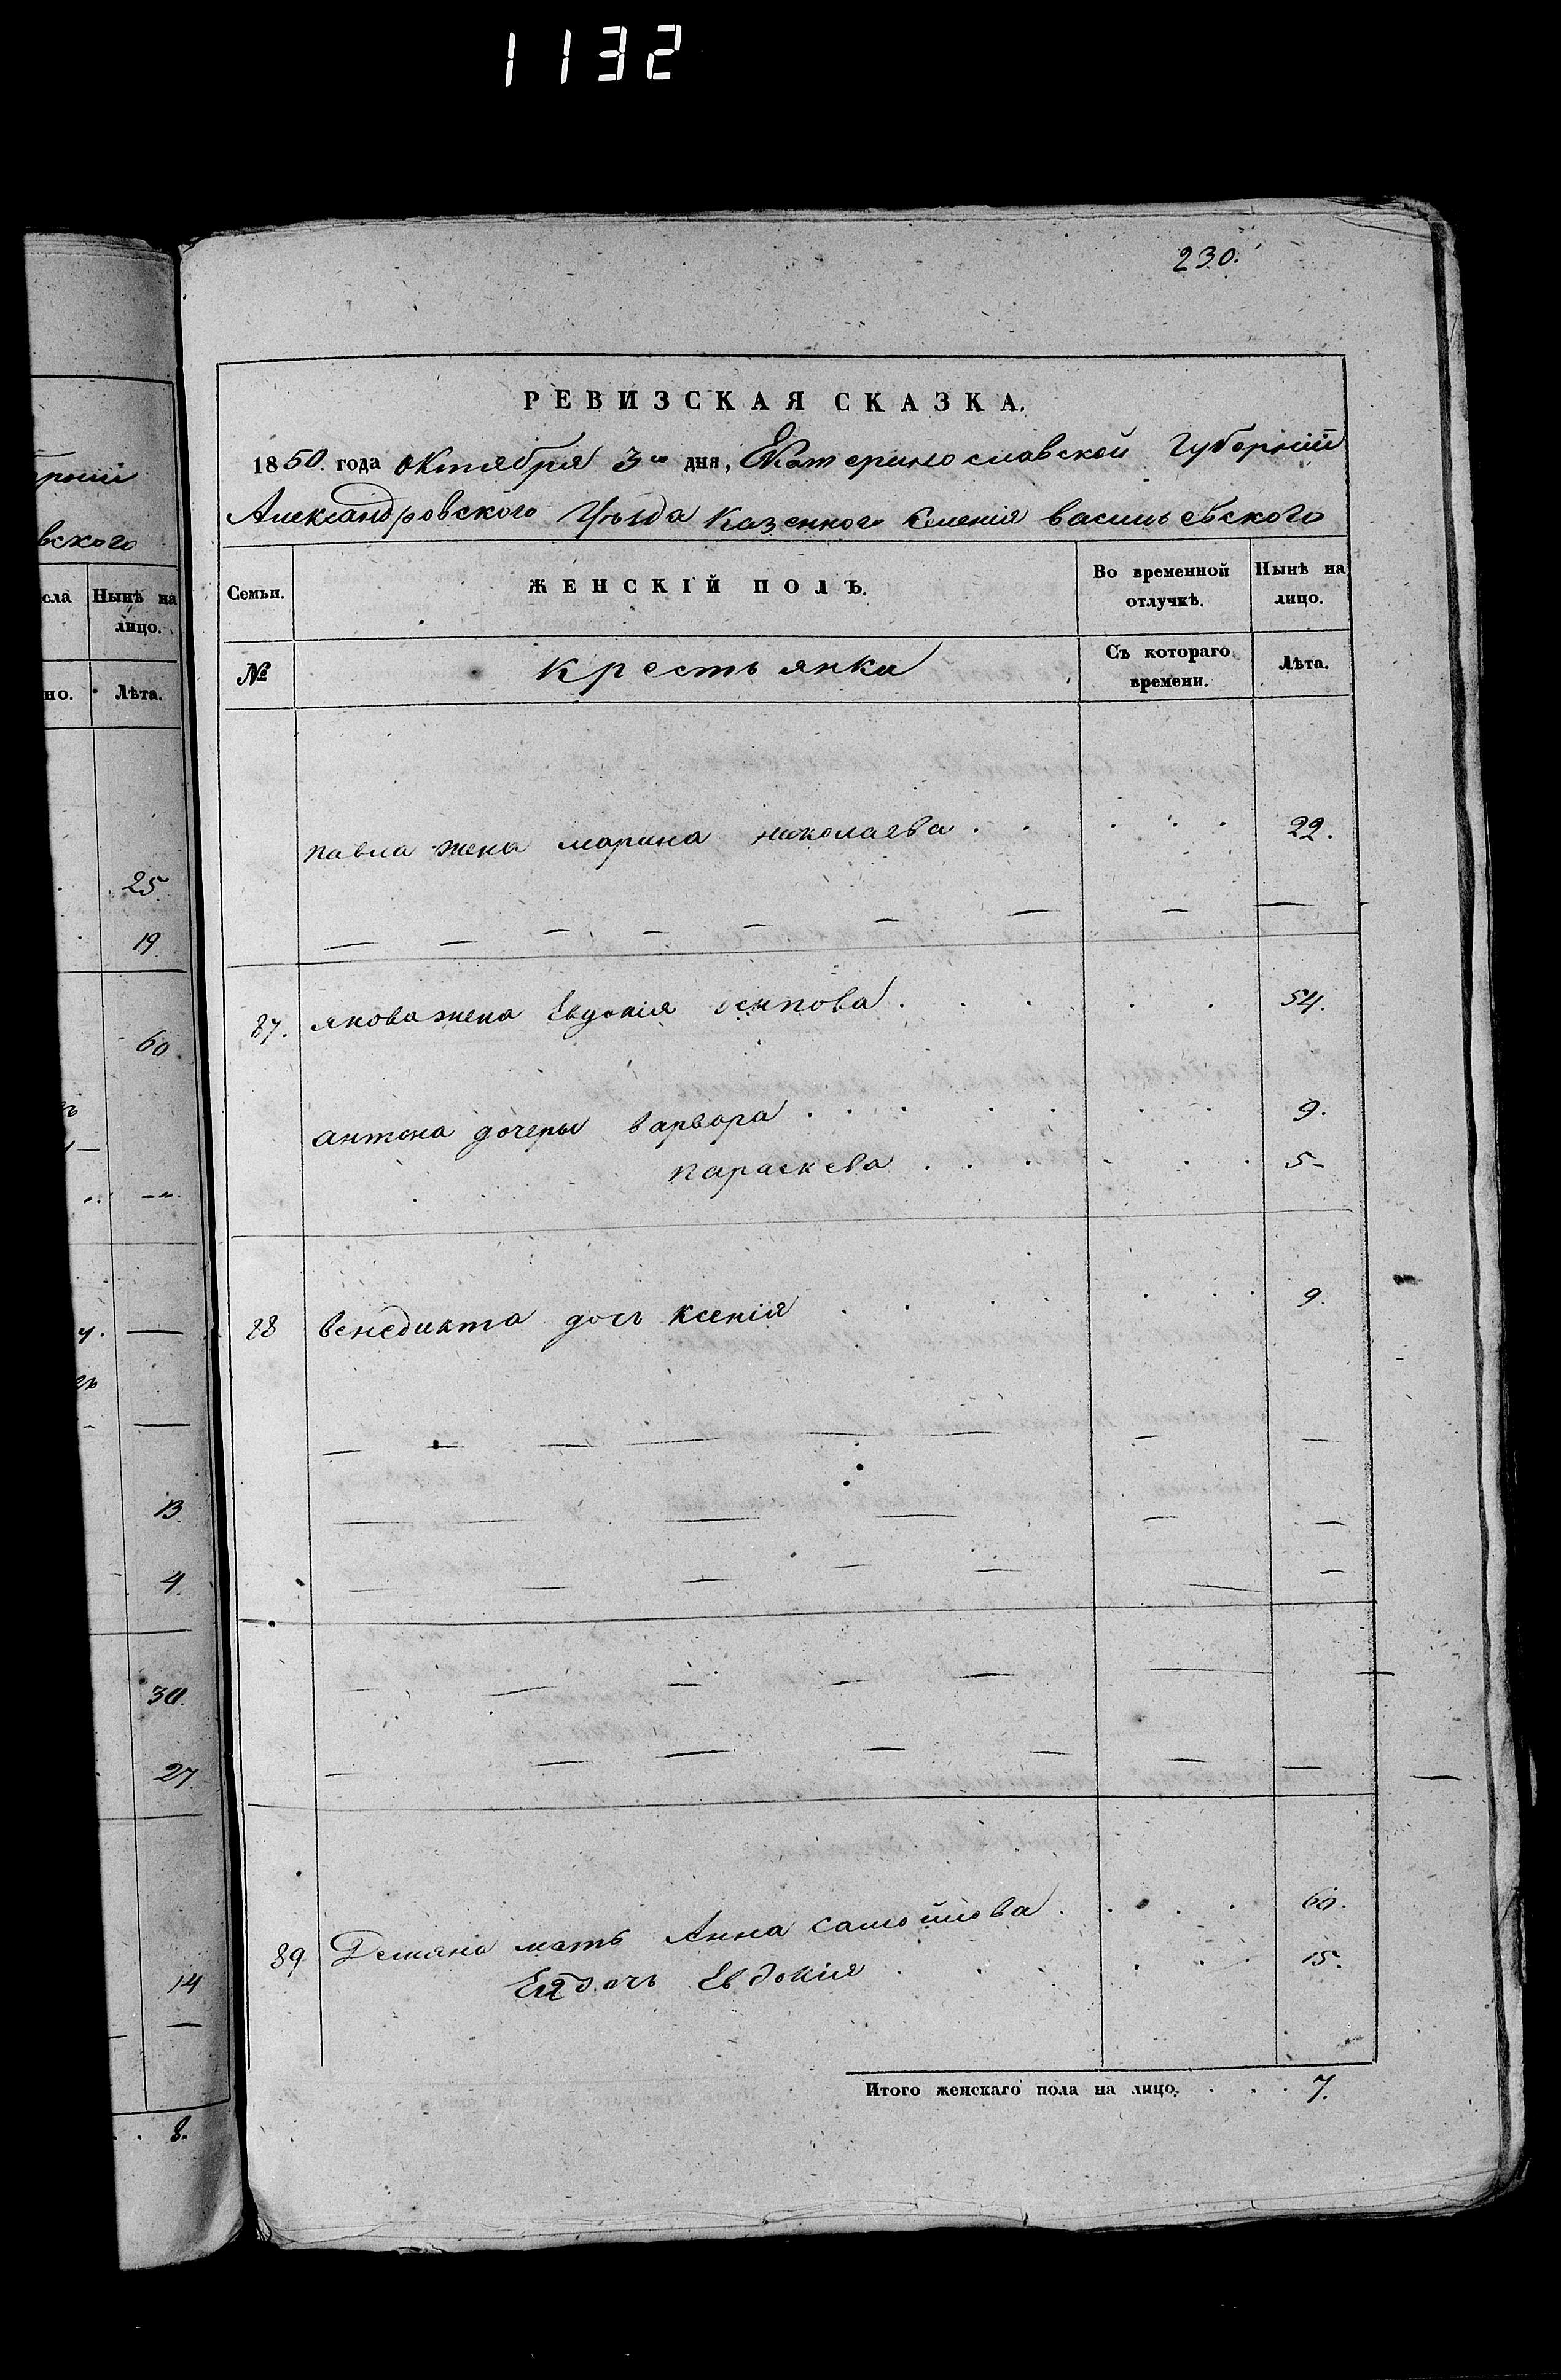 1132
230.
РЕВИЗСКАЯ СКАЗКА.
1850. года октября 3го дня, Екатеринославской Губерніи
Александровского Уѣзда Казенного Селенія васильевского
Семьи.
ЖЕНСКІЙ ПОЛЪ.
Во временной отлучкѣ.
Нынѣ на лицо.
№
Крестьянки
Съ котораго времени.
Лѣта.
павла жена марина николаева . . . . . 22.
87. якова жена Евдокія осипова . . . . . 54.
антона дочеры варвора . . . . . . . 9.
параскева . . . . . . 5-
88 венедикта дочь ксенія . . . . . . . 9.
89. Демяна мать Анна самойлова . . . . 60.
Ея дочь Евдокия . . . . . 15.
Итого женскаго пола на лицо. . . . 7.
рніи
вского
сла
Нынѣ на
лицо.
но.
Лѣта.
25.
19.
60
13.
4.
30.
27.
14
8.